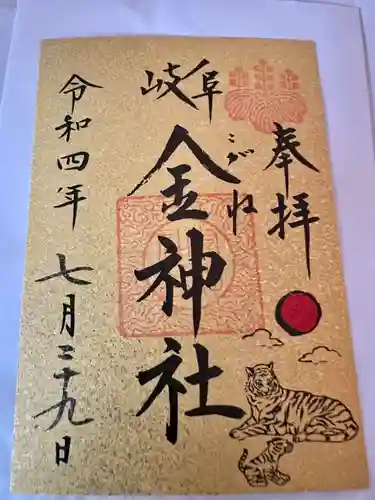 奉拝
岐阜
金神社
こがね
令和四年 七月二十九日